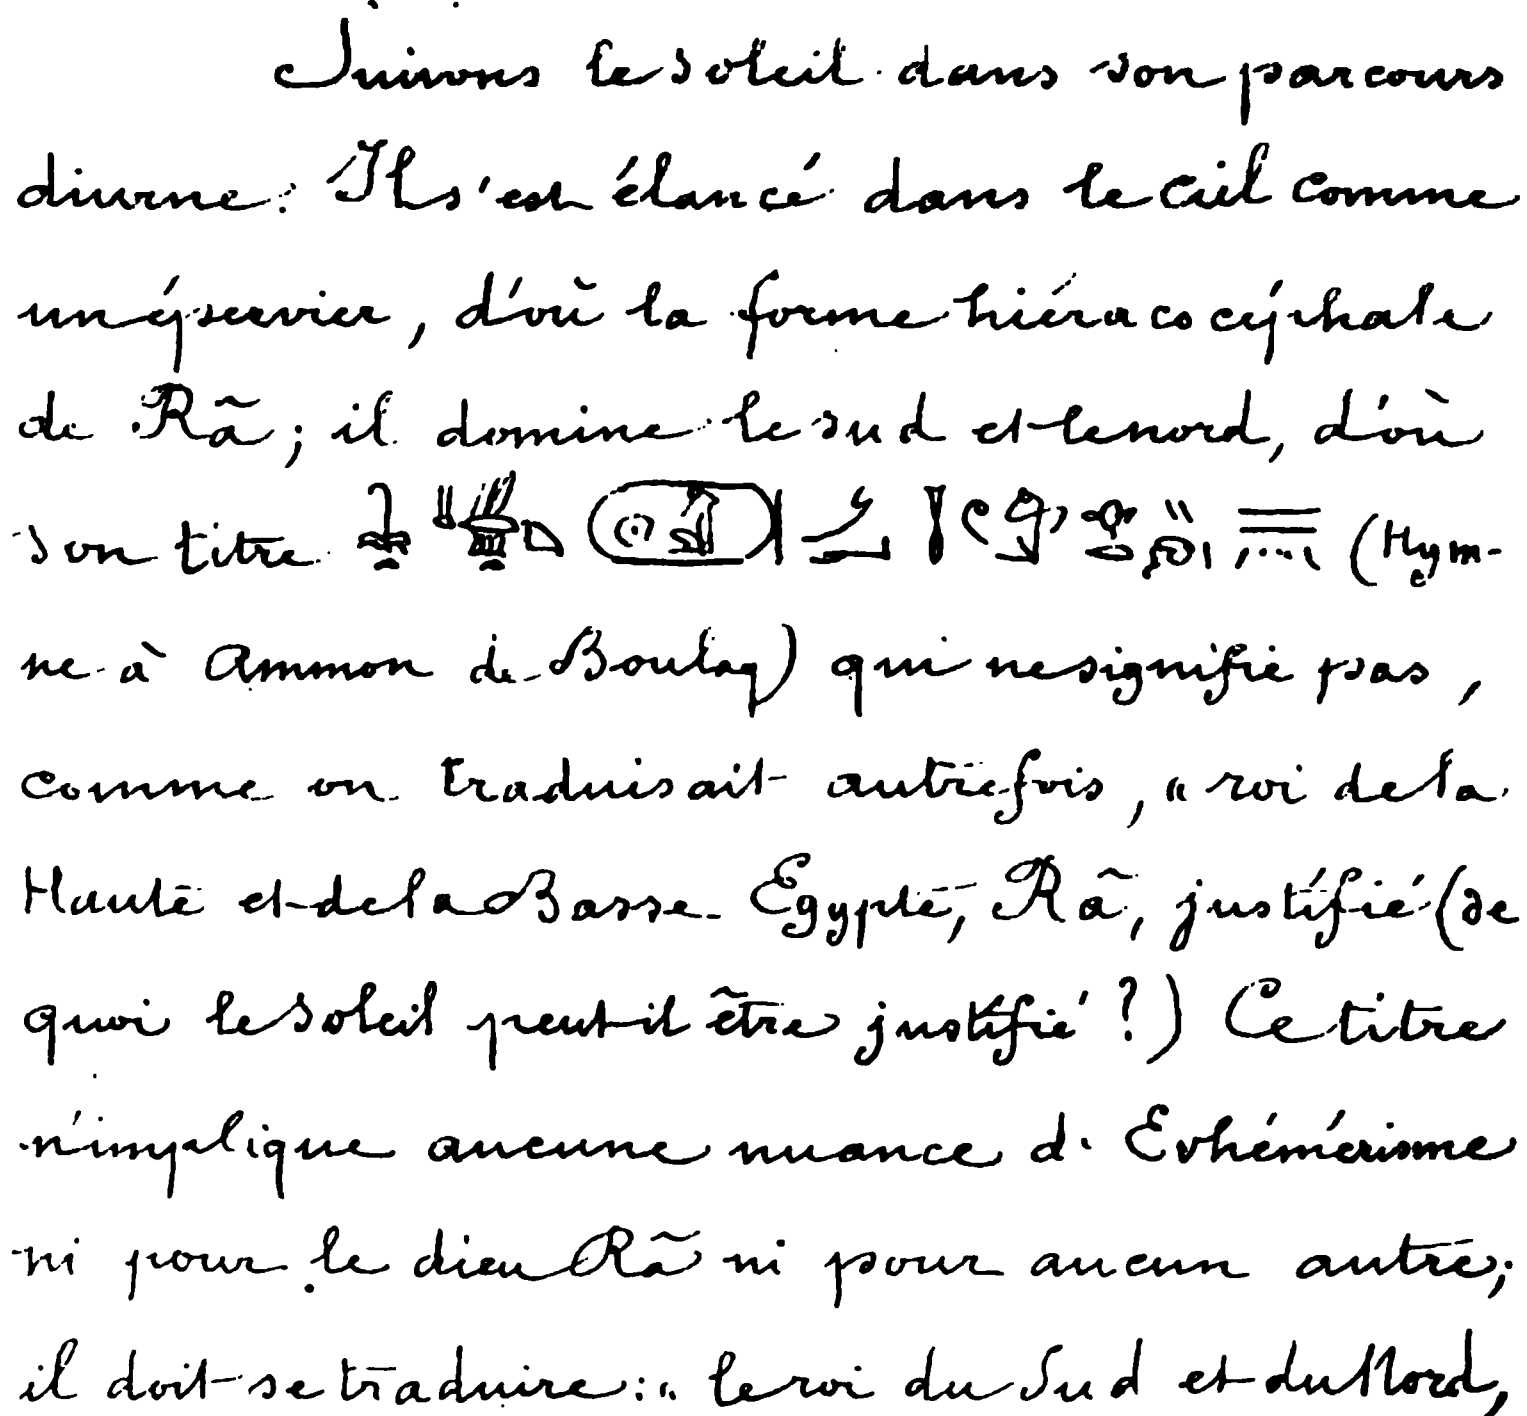 Suivons le soleil dans son parcours
diurne. Il s'est élancé dans le ciel comme
un épervier, d'où la forme hiéracocéphale
de Rã; il domine le sud et le nord, d'où
son titre (Hym-
ne à Ammon de Boulaq) qui ne signifie pas,
comme on traduisait autrefois, « roi de la
Haute et de la Basse Egypte, Rã, justifié (de
quoi le soleil peut-il être justifié ?) Ce titre
n'implique aucune nuance d'Evhémérisme
ni pour le dieu Rã ni pour aucun autre;
il doit se traduire: « le roi du Sud et du Nord,